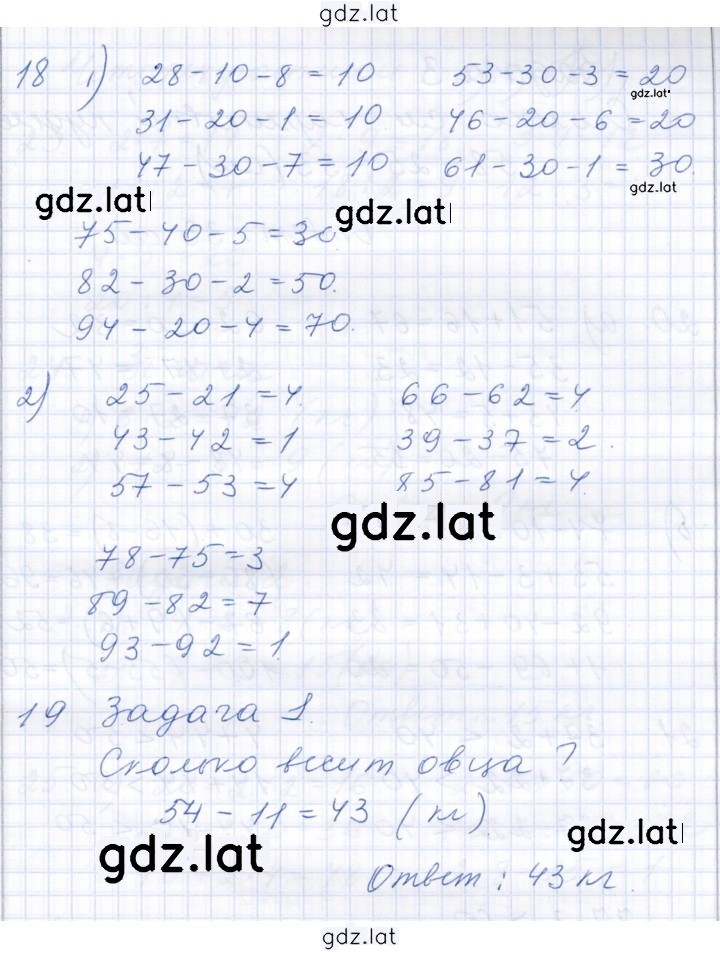 gdz.lat
18 1) 28-10-8=10 53-30-3=20
gdz.lat
31-20-1=10 46-20-6=20
47-30-7=10 61-30-1=30.
gdz.lat
gdz.lat gdz.lat
75-40-5=30
82-30-2=50.
94-20-4=70.
2) 25-21=4. 66-62=4
43-42=1 39-37=2.
57-53=4 85-81=4.
gdz.lat
78-75=3
89-82=7
93-92=1.
19 Задача 1.
Сколько весит овца?
54-11=43 (кг)
gdz.lat
gdz.lat
Ответ: 43 кг.
gdz.lat